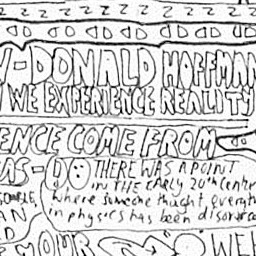 Z Z Z Z Z Z Z Z Z Z
-DONALD HOFFMAN
WE EXPERIENCE REALITY
ENCE COME FROM
AS-DO
THERE WAS A POINT
IN THE EARLY 20th
where someone thought
in physics has been
AN
HOUR
WE